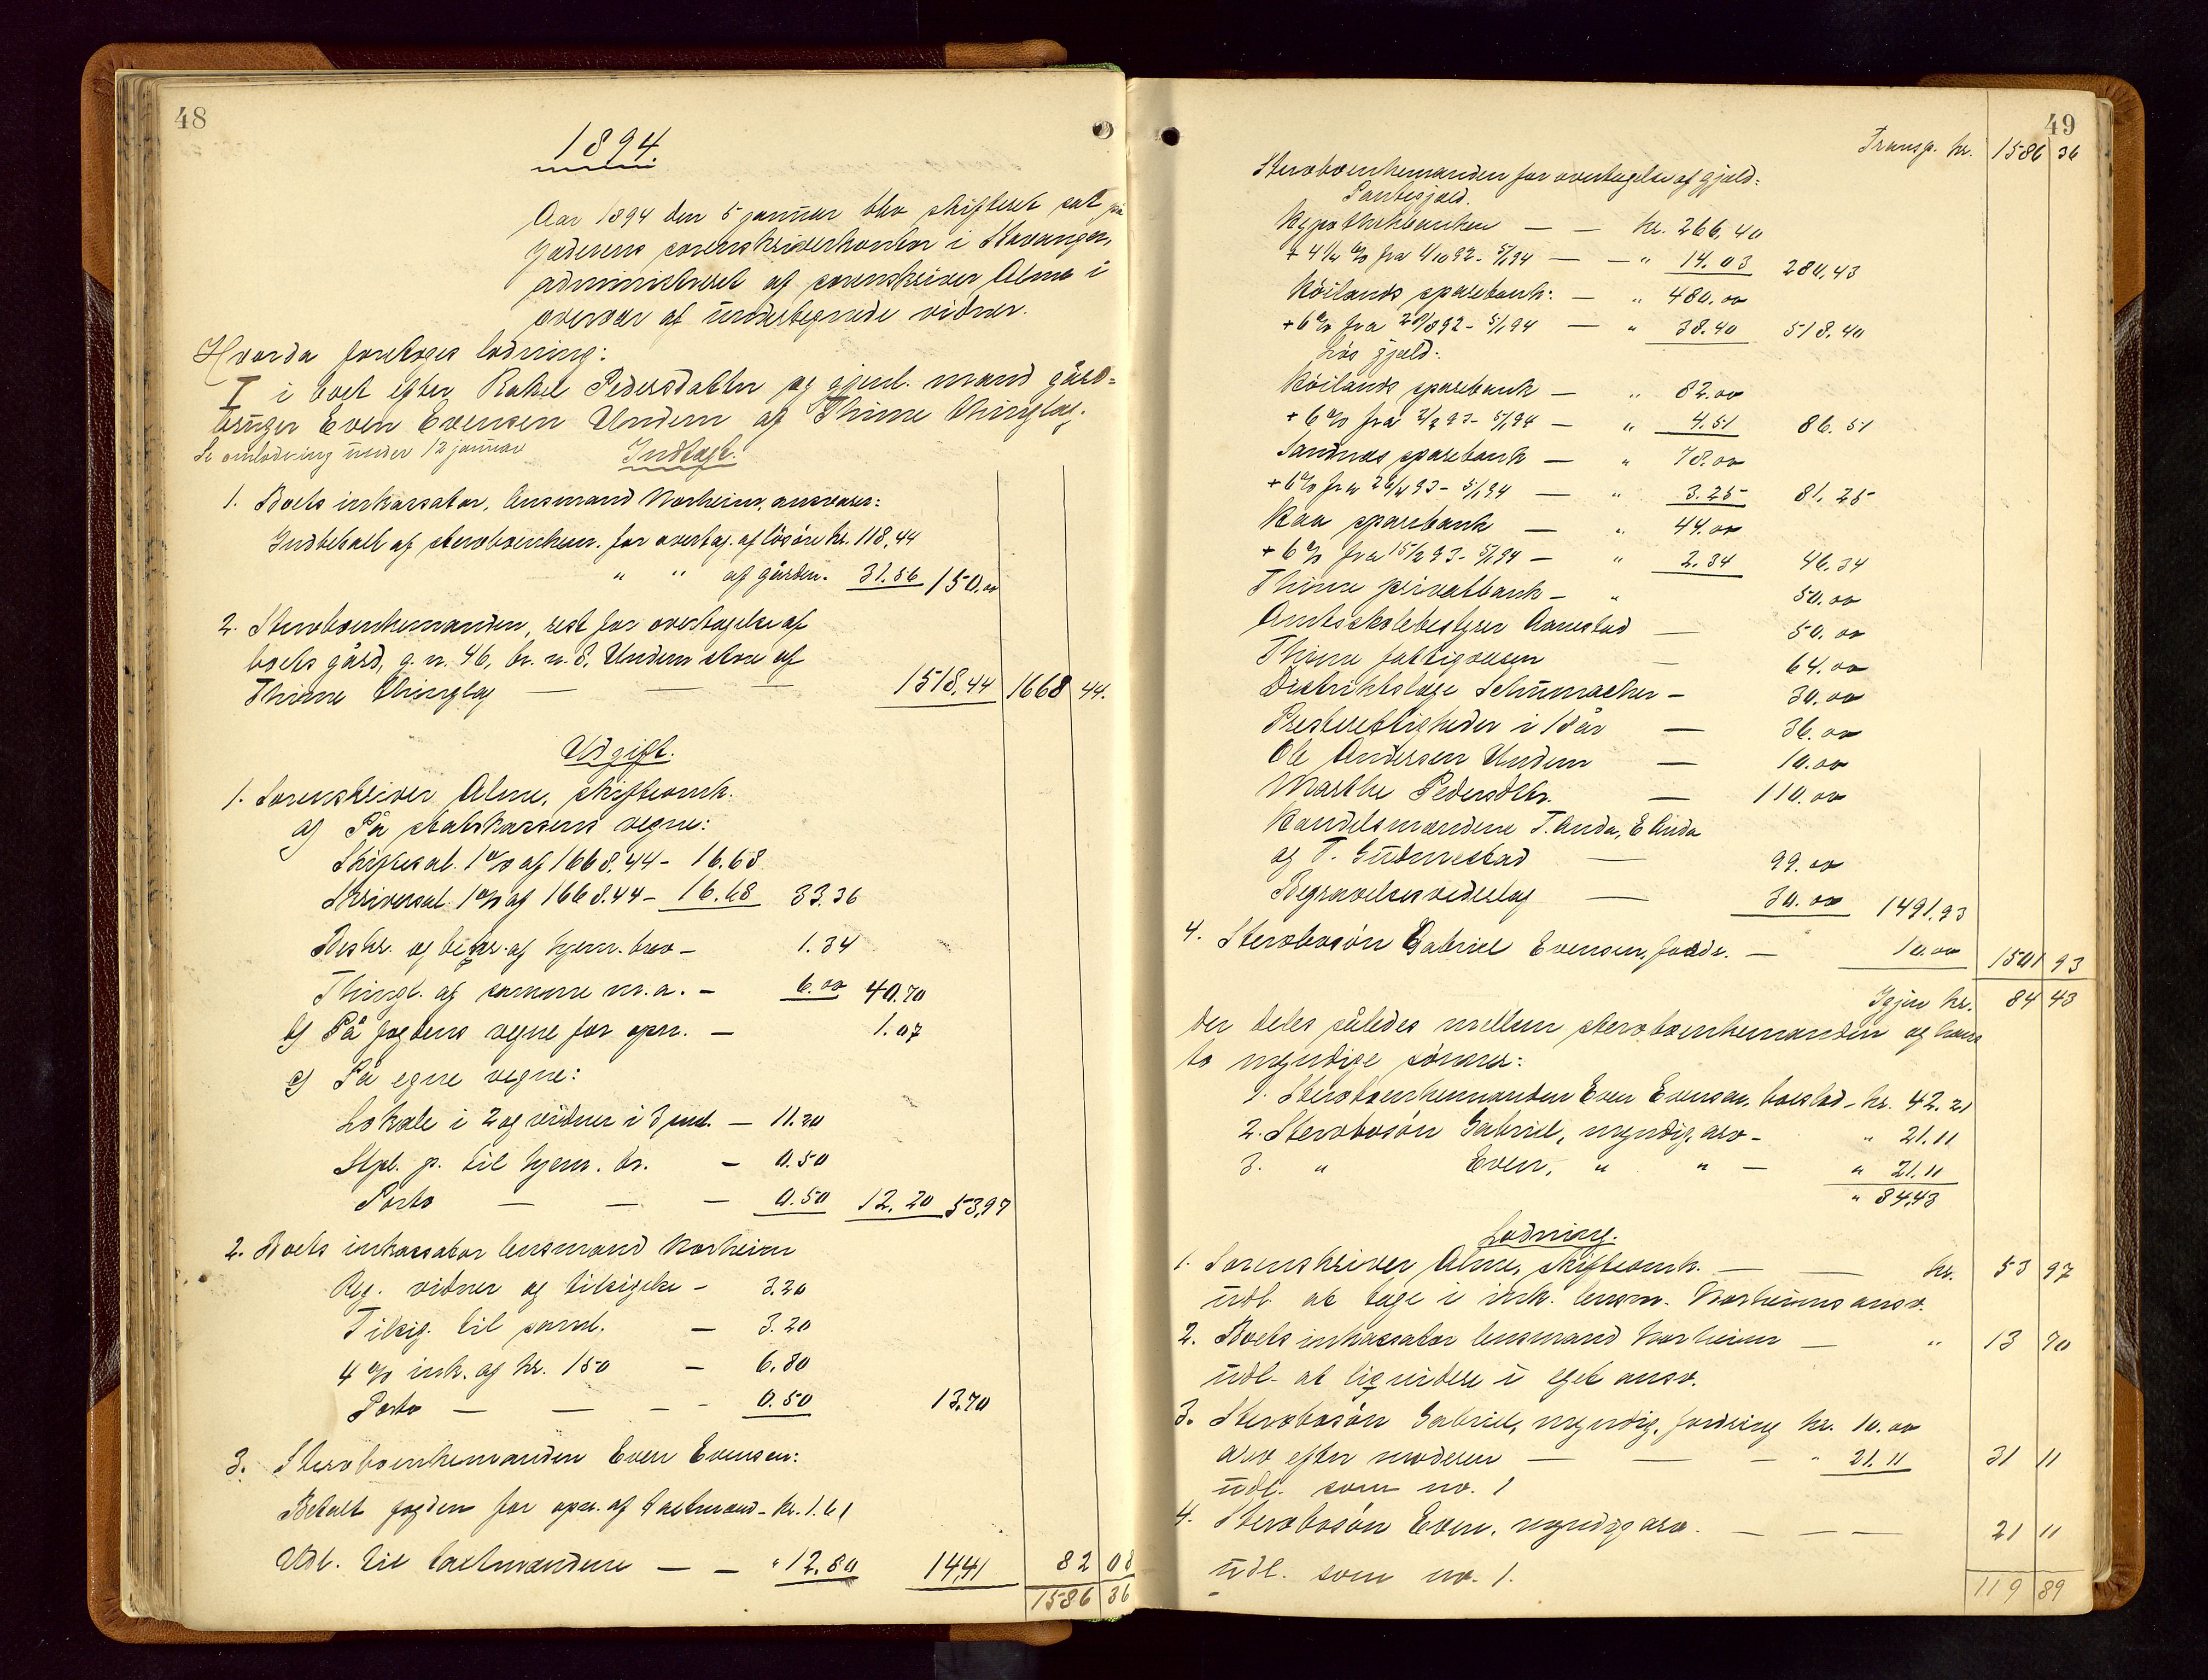 48
1894.
Aar 1894 den 5 januar blev skifteret sat på
Jæderens sorenskriverkontor i Stavanger,
administreret af sorenskriver Alme i
overvær af undertegnede vidner.
Hvorda foretoges lodning:
I i boet efter Rakel Pedersdatter og gjenl. mand gård=
bruger Even Evensen Undem af Thime thinglag.
Se omlodning under 12 januar
Indtægt.
1. Boets inkassator, lensmand Norheim, ansvarer:
Indbetalt af stervboenkem. for overtag. af lösöre kr. 118,44
" " af gården. 31.56 150.00
2. Stervboenkemanden, rest for overtagelse af
boets gård, g. n. 46, br. n. 8, Undem store af
Thime thinglag — — — 1518,44 1668 44.
Udgift.
1. Sorenskriver Alme, skifteomk.
a) På statskassens vegne:
Skiftesal. 1 % af 1668,44 - 16.68
Skriversal. 1 % af 1668.44 - 16.68 33.36
Beskr. og bekr. af hjem. brev - 1.34
Thingl. af samme m. a. - 6.00 40.70
b) På fogdens vegne for opn. - 1.07
c) På egne vegne:
Lokale i 2 og vidner i 3 saml. - 11.20
Stpl. p. til hjem. br. - 0.50
Porto — — - 0.50 12.20 53,97
2. Boets inkassator lensmand Norheim
Reg. vidner og tilsigelse - 3.20
Tilsig. til saml. - 3.20
4 % ink. af kr. 150 - 6.80
Porto — — - - 0.50 13.70
3. Stervboenkemanden Even Evensen:
Betalt fogden for opn. af taxtmænd - kr. 1.61
Udl. til taxtmændene — — " 12.80 14,41 82 08
1586 36
49
Transp. kr. 1586 36
Stervboenkemanden for overtagelse af gjæld:
Pantegjæld.
Hypothekbanken — — kr. 266,40
+ 4 1/4 % fra 1/10 92 - 5/1 94 — - " 14.03 280,43
Höilands sparebank: — " 480.00
+ 6 % fra 20/8 92 - 5/1 94 — " 38.40 518,40
Lös gjæld:
Höilands sparebank — " 82.00
+ 6 % fra 2/2 93 - 5/1 94 — " 4.51 86.51
Sandnæs sparebank — " 78.00
+ 6 % fra 26/4 93 - 5/1 94 — " 3.25 81,25
Haa sparebank — " 44.00
+ 6 % fra 15/2 93 - 5/1 94 — " 2.34 46.34
Thime privatbank — " 50.00
Amtsskolebestyrer Aanestad — 50.00
Thime fattigvæsen — 64.00
Distriktslæge Schumacher — 30.00
Presterettigheder i 18 år — 36.00
Ole Andersen Undem — 10.00
Marthe Pedersdtr. — 110.00
Handelsmændene T. Anda, E Anda
og T. Gudmestad — 99.00
Begravelsesvederlag — 30.00 1491,93
4. Stervbosön Gabriel Evensen, fordr. — 10.00 1501 93
Igjen kr. 84 43
der deles således mellem stervboenkemanden og hans
to myndige sönner:
1. Stervboenkemanden Even Evensen, boeslod - kr. 42.21
2. Stervbosön Gabriel, myndig, arv - " 21.11
3. " Even, " " — " 21.11
" 84,43
Lodning.
1. Sorenskriver Alme, skifteomk. — — kr. 53 97
udl. at tage i ink. lensm. Norheims ansv.
2. Boets inkassator lensmand Norheim — " 13 70
udl. at liqvidere i eget ansv.
3. Stervbosön Gabriel, myndig, fordring kr. 10.00
arv efter moderen — — - " 21.11 31 11
udl. som no. 1
4. Stervbosön Even, myndig arv. — — — 21 11
udl. som no. 1.
119 89